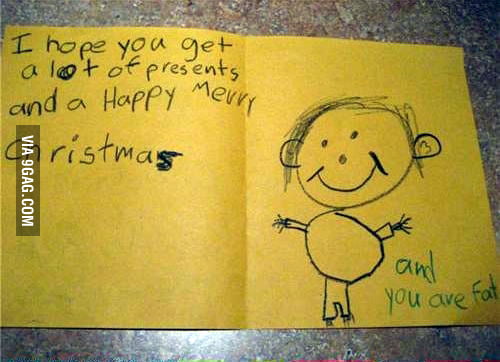 I hope you get
a lot of presents
and a Happy Merry
Christmas
and
you are fat
VIA 9GAG.COM